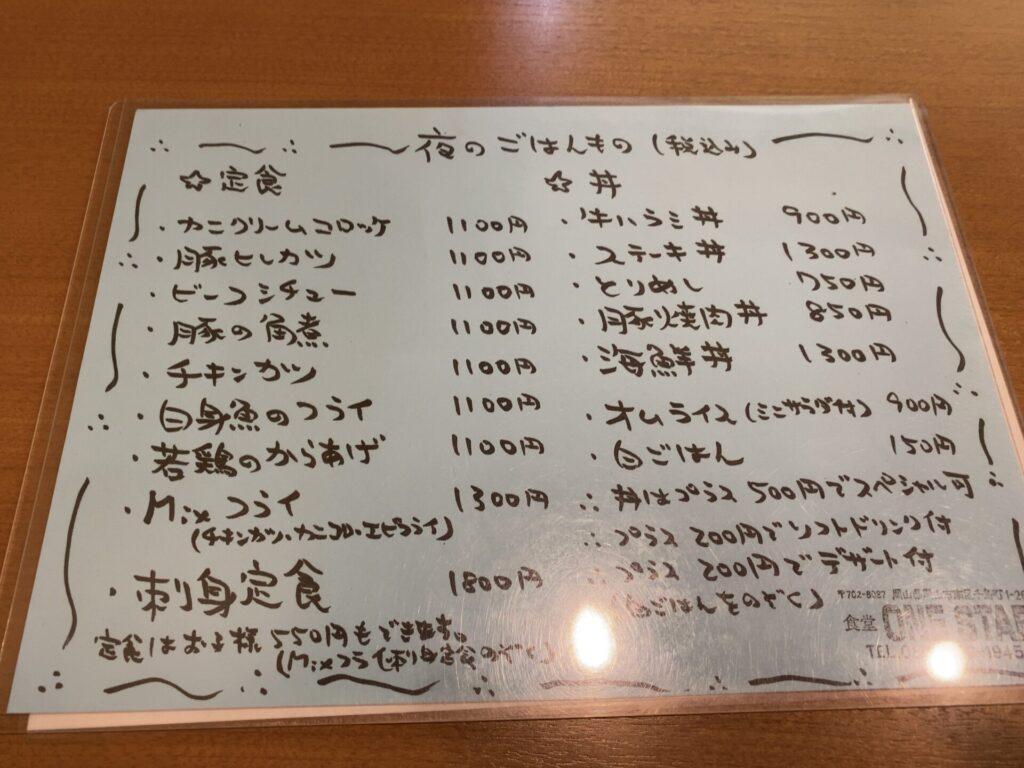 夜のごはんもの (税込み)
☆ 定食
・カニクリームコロッケ 1100円
・豚ヒレカツ 1100円
・ビーフシチュー 1100円
・豚の角煮 1100円
・チキンカツ 1100円
・白身魚のフライ 1100円
・若鶏のからあげ 1100円
・Mixフライ 1300円
(チキンカツ、カニコロ、エビフライ)
・刺身定食 1800円
定食はお子様550円もできます。
(Mixフライ、刺身定食のぞく)
☆ 丼
・牛ハラミ丼 900円
・ステーキ丼 1300円
・とりめし 750円
・豚焼肉丼 850円
・海鮮丼 1300円
・オムライス (ミニサラダ付) 900円
・白ごはん 150円
∴ 丼はプラス500円でスペシャル可
∴ プラス200円でソフトドリンク付
∴ プラス200円でデザート付
(白ごはんをのぞく)
〒702-8027
食堂 ONE STAR
TEL 1945